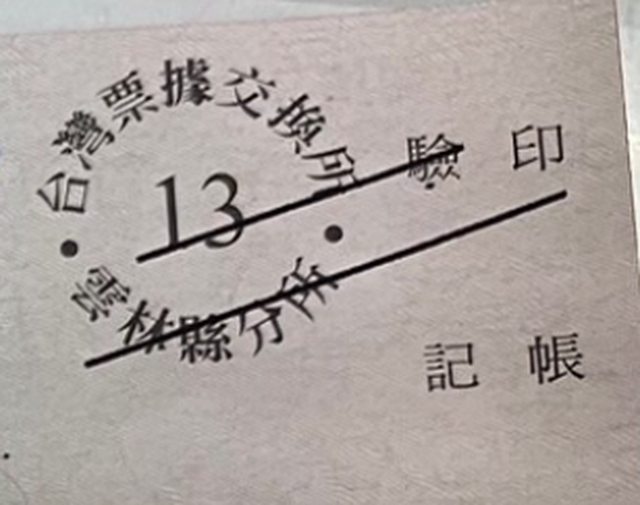 台灣票據交換所
13
雲林縣分所
驗印
記帳